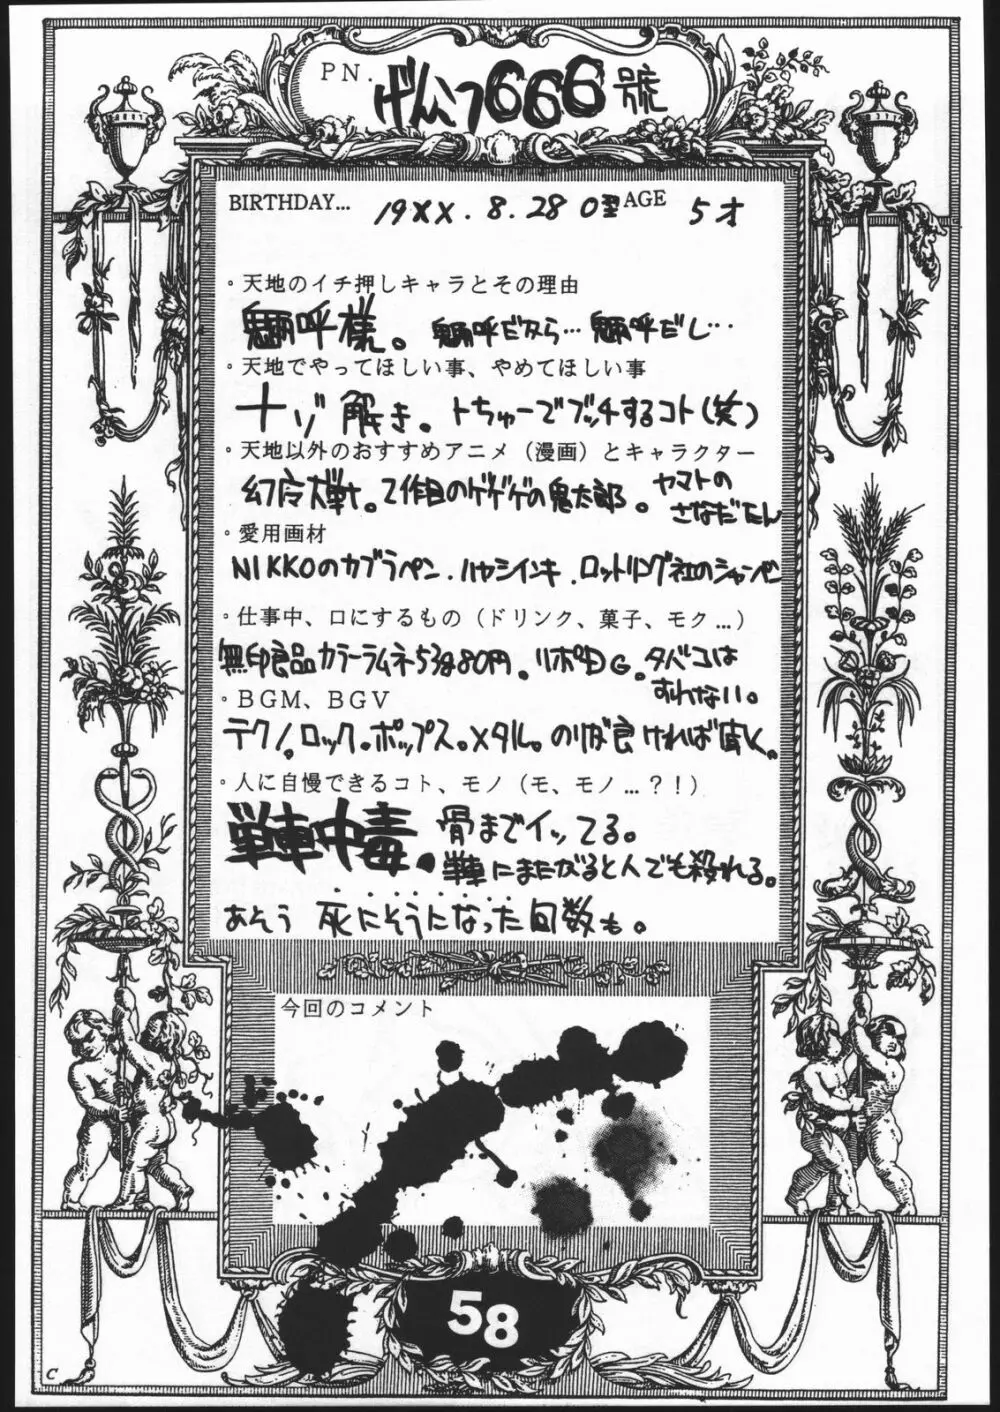 PN. げんこつ666號
BIRTHDAY... 19XX. 8. 28 0型 AGE 5才
・天地のイチ押しキャラとその理由
魎呼様。魎呼だから…魎呼だし…
・天地でやってほしい事、やめてほしい事
ナゾ解き。トちゅーでブッチするコト(笑)
・天地以外のおすすめアニメ（漫画）とキャラクター
幻魔大戦。2作目のゲゲゲの鬼太郎。ヤマトの
さなだたん
・愛用画材
NIKKOのカブラペン.ハヤシインキ.ロットリング社のシャーペン
・仕事中、口にするもの（ドリンク、菓子、モク...）
無印良品カラーラムネ53g80円。リポDG。タバコは
すわない。
・BGM、BGV
テクノ。ロック。ポップス。メタル。のりが良ければ
・人に自慢できるコト、モノ（モ、モノ...？！）
戦車中毒。骨までイッてる。
戦車にまたがると人でも殺れる。
あそう 死にそうになった回数も。
今回のコメント
58
C